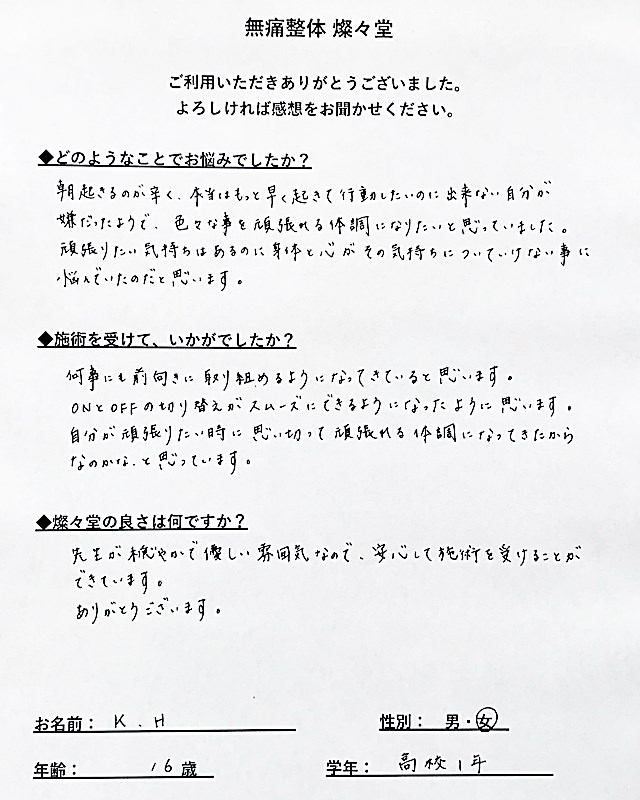 無痛整体 燦々堂
ご利用いただきありがとうございました。
よろしければ感想をお聞かせください。
◆どのようなことでお悩みでしたか？
朝起きるのが辛く、本当はもっと早く起きて行動したいのに出来ない自分が
嫌だったようで、色々な事を頑張れる体調になりたいと思っていました。
頑張りたい気持ちはあるのに身体と心がその気持ちについていけない事に
悩んでいたのだと思います。
◆施術を受けて、いかがでしたか？
何事にも前向きに取り組めるようになってきていると思います。
ONとOFFの切り替えがスムーズにできるようになったように思います。
自分が頑張りたい時に思い切って頑張れる体調になってきたから
なのかな、と思っています。
◆燦々堂の良さは何ですか？
先生が穏やかで優しい雰囲気なので、安心して施術を受けることが
できています。
ありがとうございます。
お名前： K.H 性別： 男・女
年齢： 16歳 学年： 高校1年